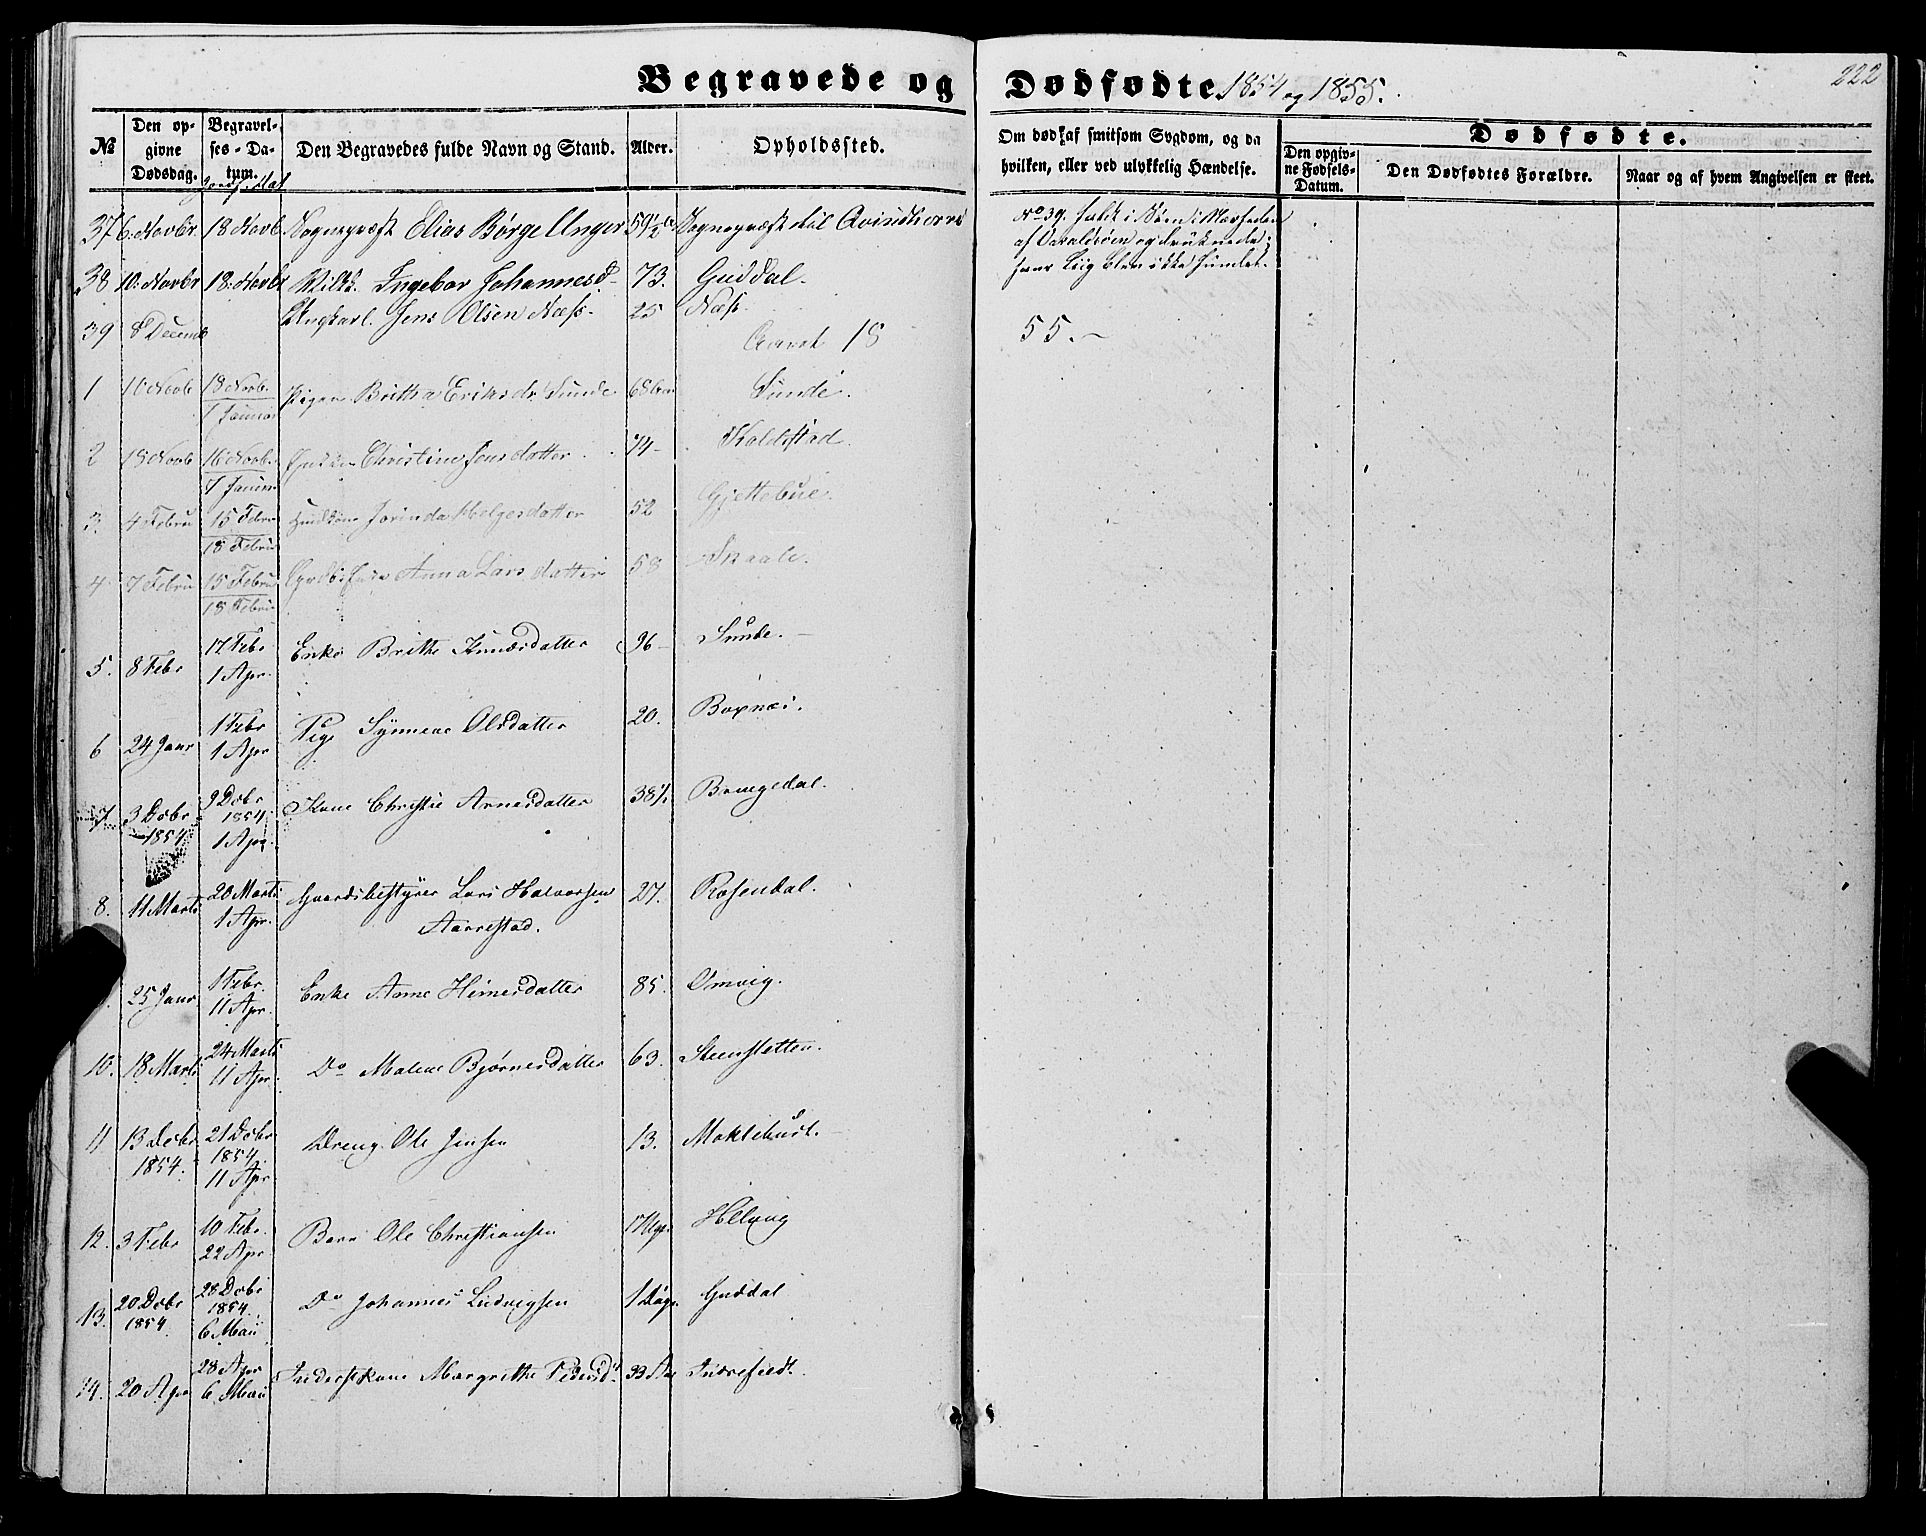 Begravede og Dødfødte 1854 og 1855.
222
№
Den opgivne Dødsdag.
Begravelses-Datum.
Den Begravedes fulde Navn og Stand.
Alder.
Opholdssted.
Om død af smitsom Sygdom, og da hvilken, eller ved ulykkelig Hændelse.
Dødfødte.
Den opgivne Fødsels-Datum.
Den Dødfødtes Forældre.
Naar og af hvem Angivelsen er skeet.
37 6. Novbr. 18 Novb. Sognepræst Elias Børge Unger 59½ Sognepræst til Qvindherred
38 10. Novbr 18. Novbr Ingebor Johannesd. 73. Guddal.
39 8 Decemb Ungkarl. Jens Olsen Næss. 25 Næss.
No 39. faldt i
og druknede;
hans Liig blev ikke fundet.
Aaret 18
55.
1 16 Novb 18 Novb. Pigen Britha Eriksdr Sunde 68 Sunde.
7 Januar
2 15 Novb 16 Novb. Christine Jensdatter 74 Skaldestad.
7 Januar
3 4 Febru 15 Febr Jorinda Helgesdatter 52 Gjettebue.
18 Febru
4 7 Febru 15 Febru Anna Larsdatter 58 Skaale.
18 Febru
5. 8 Febr 17 Febr Enke Brithe Knudsdatter 96 Sunde.
1 Apr.
6 24 Janr 1 Febr Pige Synneve Olsdatter 20. Bognæs.
1 Apr
7 3 Decbr 1854 9 Decbr 1854 Kone Christie Arnesdatter 38½ Bringedal.
1 Apr.
8. 11 Marts 20 Marts Gaardsbestyrer Lars Halvorsen 27. Rosendal.
1 Apr. Aarrestad.
25 Janr. 1 Febr. Enke Anne Heinesdatter 85. Omvig.
11 Apr.
10. 18 Marts 24 Marts Do Malene Bjørnesdatter 63. Steensletten.
11 Apr.
11 13 Decbr 1854. 21 Decbr 1854 Dreng Ole Jensen 13. Moklebust.
11 Apr
12. 3 Febr 10 Febr. Barn Ole Christiansen 17 Uger. Helvig
22 Apr
13. 20 Decbr 1854. 28 Decbr 1854. Do Johannes Ludvigsen 1 Dag. Guddal
6 Mai
14. 20 Apr 28 Apr Inderstkone Margrithe Pedersd. 33 Aar Indrefjeldt.
6 Mai